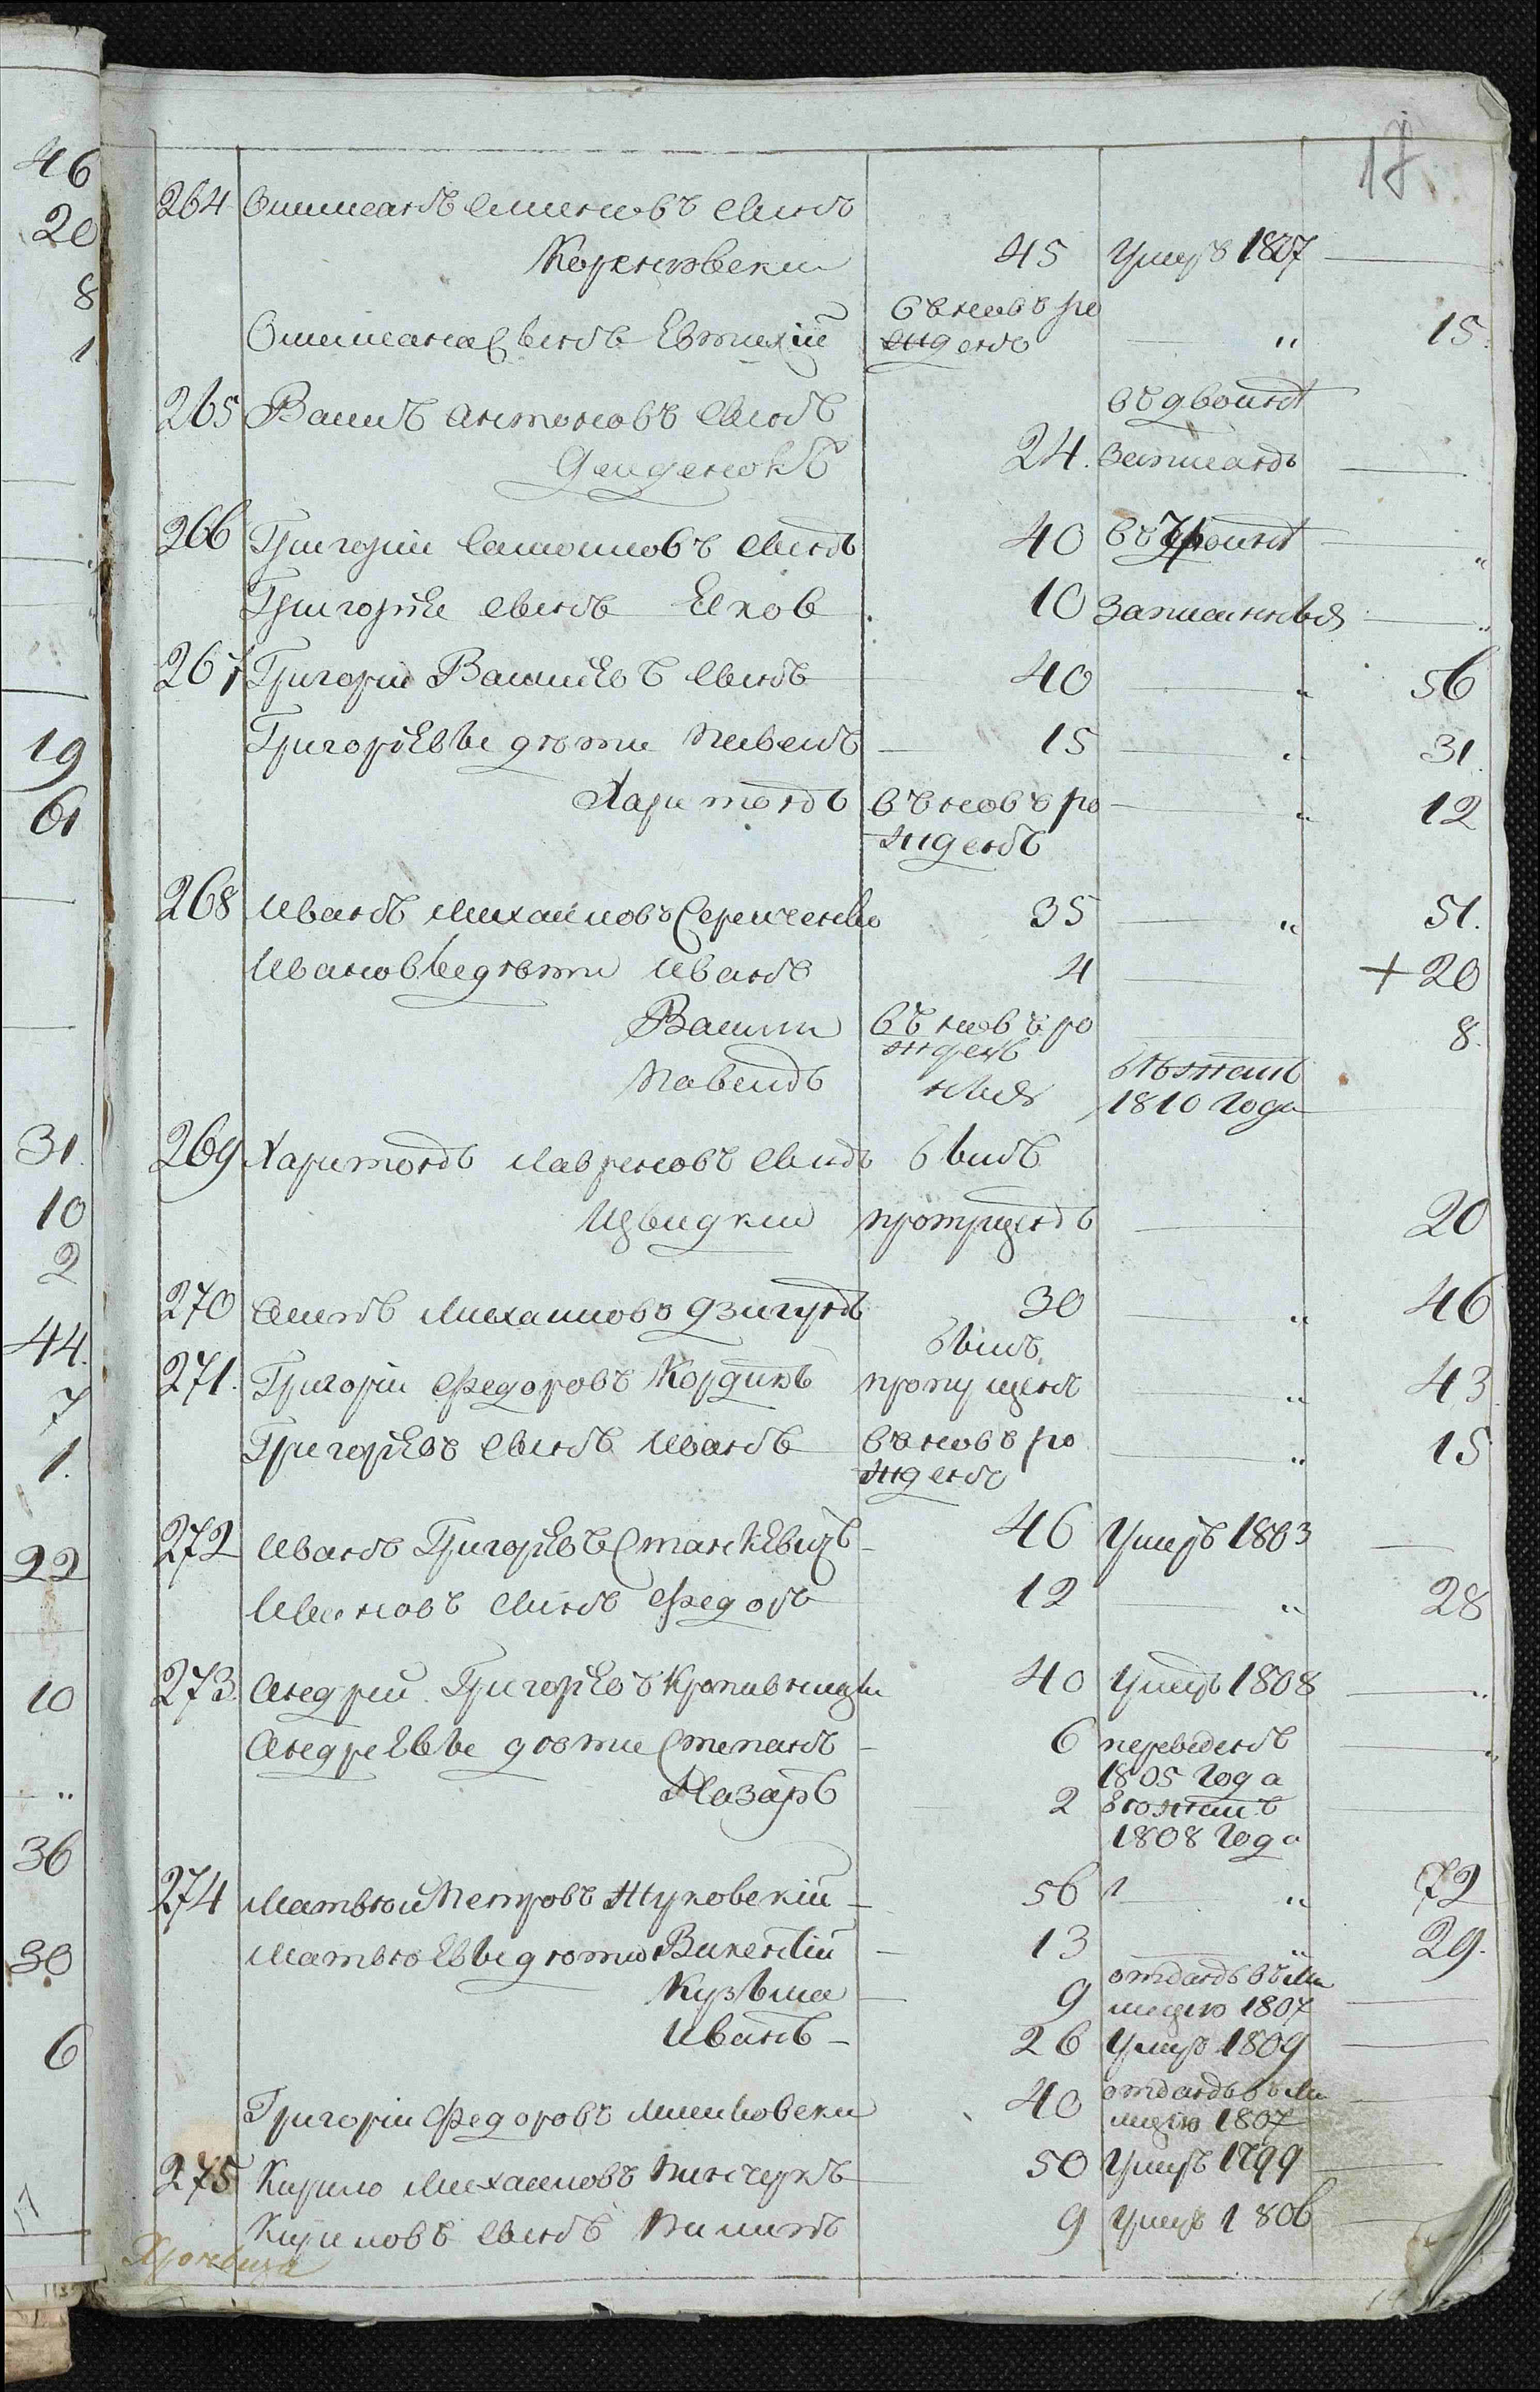 17
264 Симеонъ сынъ
45 Умеръ 1807
въ новъ ро
сынъ Евтихій жденъ 15.
265 Василъ Антоновъ сынъ въ двойнѣ
24. Записанъ
266 Григорий сынъ 40 въ двойнѣ
Григорьев сынъ Яков 10 Записанныя
267 Григории Васильевъ сынъ 40 56
Григорьевы дѣти Павелъ 15 31.
Харитонъ въ новъ ро 12
жденъ
268 Иванъ Михайловъ 35 51.
Ивановы дѣти Иванъ 4 + 20
Василии въ новъ ро 8.
жден
Павелъ ныя бѣжалъ
1810 Года
269 Харитонъ Лавреновъ сынъ былъ
пропущенъ 20
270 Михайловъ Дзигунъ 30 46
былъ
271. Григорій Федоровъ Кордикъ пропущенъ 43
Григорьевъ сынъ Иванъ въ новъ ро 15
жденъ
272 Иванъ Григорьевъ Станкевичъ 46 Умеръ 1803
Ивановъ сынъ Федоръ 12 28
273. Андрей Григорьевъ 40 Умеръ 1808
Андреевы дѣти Степанъ 6 переведенъ
1805 Года
Назаръ 2 бѣжалъ
1808 Года
274 Матвѣй Петровъ Жуковскій 56 72
Матвѣевы дѣти Викентій 13 29.
отданъ въ ми
Кузьма 9 лицию 1807
Иванъ 26 Умеръ 1809
отданъ въ ми
Григоріи Федоровъ 40 лицию 1807
275 Кирило Михайловъ Пинчукъ 50 Умеръ 1799
Кириловъ сынъ 9 Умеръ 1806
46
20
8
1
19
61
31.
10
2
44.
7
1.
22
10
36
30
6